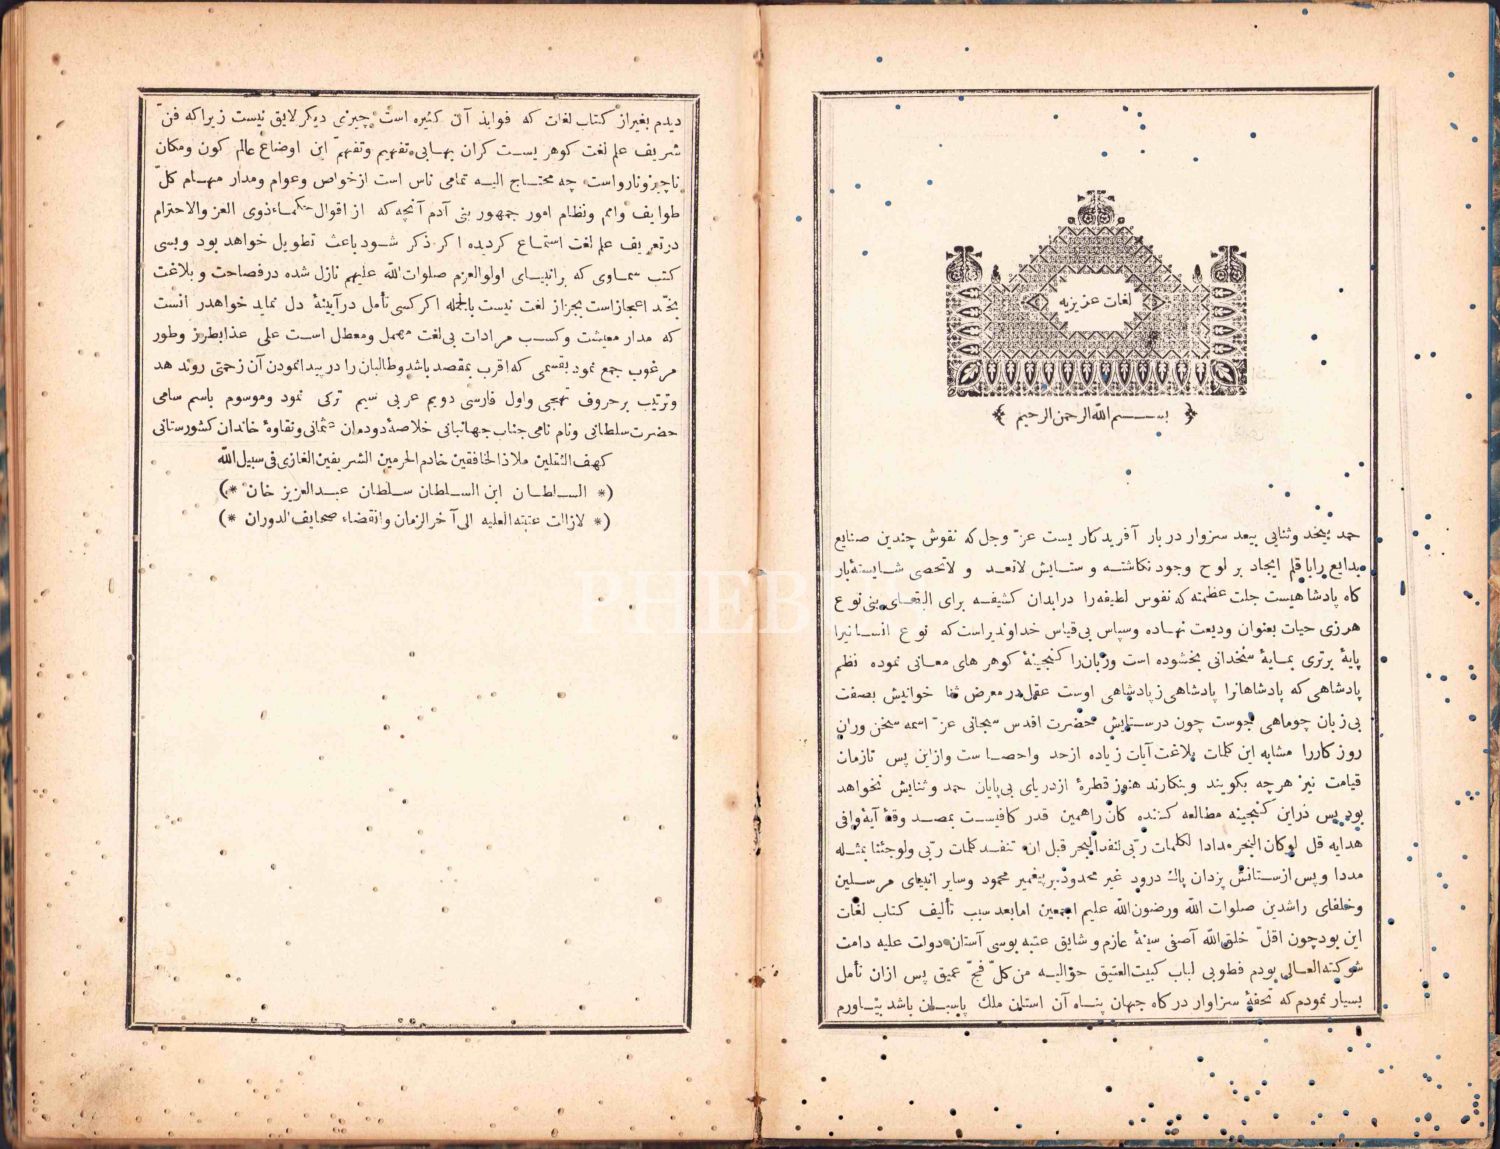 لغات عزیزیه
بســـم الله الرحمن الرحیم
حمد بیحد وثنایی بیعد سزوار دربار آفریدکار یست عزّ وجل که نقوش چندین صنایع
بدایع رابا قلم ایجاد بر لوح وجود نکاشته و ستایش لاتعد و لاتحصی شایستهٔ بار
کاه پادشاهیست جلت عظمته که نفوس لطیفه را درابدان کثیفه برای البقای بنی نوع
هرزی حیات بعنوان ودیعت نهاده وسپاس بی قیاس خداوندیراست که نوع انسانیرا
پایهٔ برتری بمایهٔ سخندانی بخشوده است وزبان را کنجینهٔ کوهر های معانی نموده نظم
پادشاهی که پادشاهانرا پادشاهی ز پادشاهی اوست عقل در معرض ثنا خوانیش بصفت
بی زبان چوماهی بجوست چون درستایش حضرت اقدس سبحانی عزّ اسمه سخن وران
روز کاررا مشابه این کلمات بلاغت آیات زیاده ازحد واحصاست وازاین پس تازمان
قیامت نیز هرچه بکویند وبنکارند هنوز قطرهٔ ازدریای بی پایان حمد وثنایش نخواهد
بود پس دراین کنجینه مطالعه کننده کان راهمین قدر کافیست بمصد وقهٔ آیهٔ وافی
هدایه قل لوکان البحر مدادا لکلمات ربّی لنفد البحر قبل ان تنفد کلمات ربّی ولوجئنا بمثله
مددا وپس ازستانش یزدان پاك درود غیر محدود بر پیغمبر محمود وسایر انبیای مرسلین
وخلفای راشدین صلوات الله ورضون الله علیم اجمعین امابعد سبب تألیف کتاب لغات
این بودچون اقلّ خلق الله آصفی سینهٔ عازم و شایق عتبه بوسی آستان دولت علیه دامت
شوکته العالی بودم فطوبی لباب کبیت العتیق حوّالیه من کلّ فجّ عمیق پس ازان تأمل
بسیار نمودم که تحفهٔ سزاوار درکاه جهان پناه آن استان ملك پاسبان باشد بیاورم
دیدم بغیراز کتاب لغات که فوایذ آن کثیره است چیزی دیکر لایق نیست زیراکه فنّ
شریف علم لغت کوهریست کران بهابی تفهیم وتفهّم این اوضاع عالم کون ومکان
ناچیزوناروا ست چه محتاج الیه تمامی ناس است ازخواص وعوام ومدار مهام کلّ
طوایف وامم ونظام امور جمهور بنی آدم آنچه که از اقوال حکماء ذوی العز والاحترام
درتعریف علم لغت استماع کردیده اکر ذکر شود باعث تطویل خواهد بود وبسی
کتب سماوی که برانبیای اولوالعزم صلوات الله علیهم نازل شده درفصاحت و بلاغت
بحدّ اعجازاست بجز از لغت نیست بالجمله اکر کسی تأمل درآیینهٔ دل نماید خواهدر انست
که مدار معیشت وکسب مرادات بی لغت مهمل ومعطل است علی هذابطرز وطور
مرغوب جمع نمود بقسمی که اقرب بمقصد باشد وطالبان را درپیدانمودن آن زحمتی روند هد
وترتیب برحروف تهجی واول فارسی دویم عربی سیم ترکی نمود وموسوم باسم سامی
حضرت سلطانی ونام نامی جناب جهانبانی خلاصهٔ دودمان عثمانی ونقاوهٔ خاندان کشورستانی
کهف الثقلین ملاذ الخافقین خادم الحرمین الشریفین الغازی فی سبیل الله
(* السلطان ابن السلطان سلطان عبدالعزیز خان *)
(* لازالت عتبته العلیه الی آخر الزمان وانقضاء صحایف الدوران *)